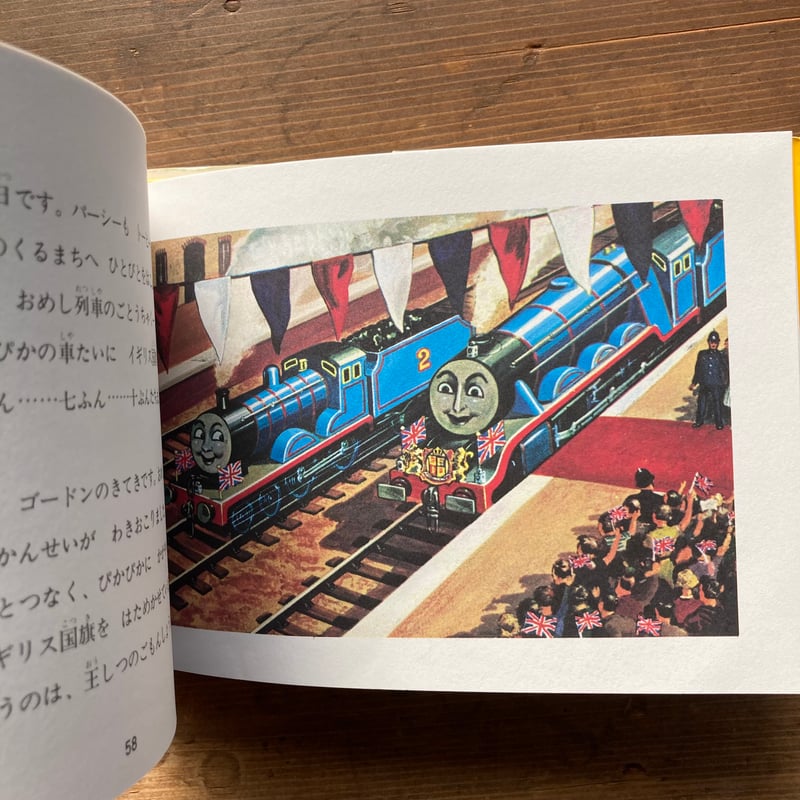 日です。パーシーも トービ
のくるまちへ ひとびとを
おめし列車のごとうちゃく
ぴかの車たいに イギリス
ん……七ふん……十ぷん
ゴードンのきてきです。
かんせいが わきおこりました
とつなく、ぴかぴかに
ギリス国旗を はためかせて
うのは、王しつのごもん
58
2